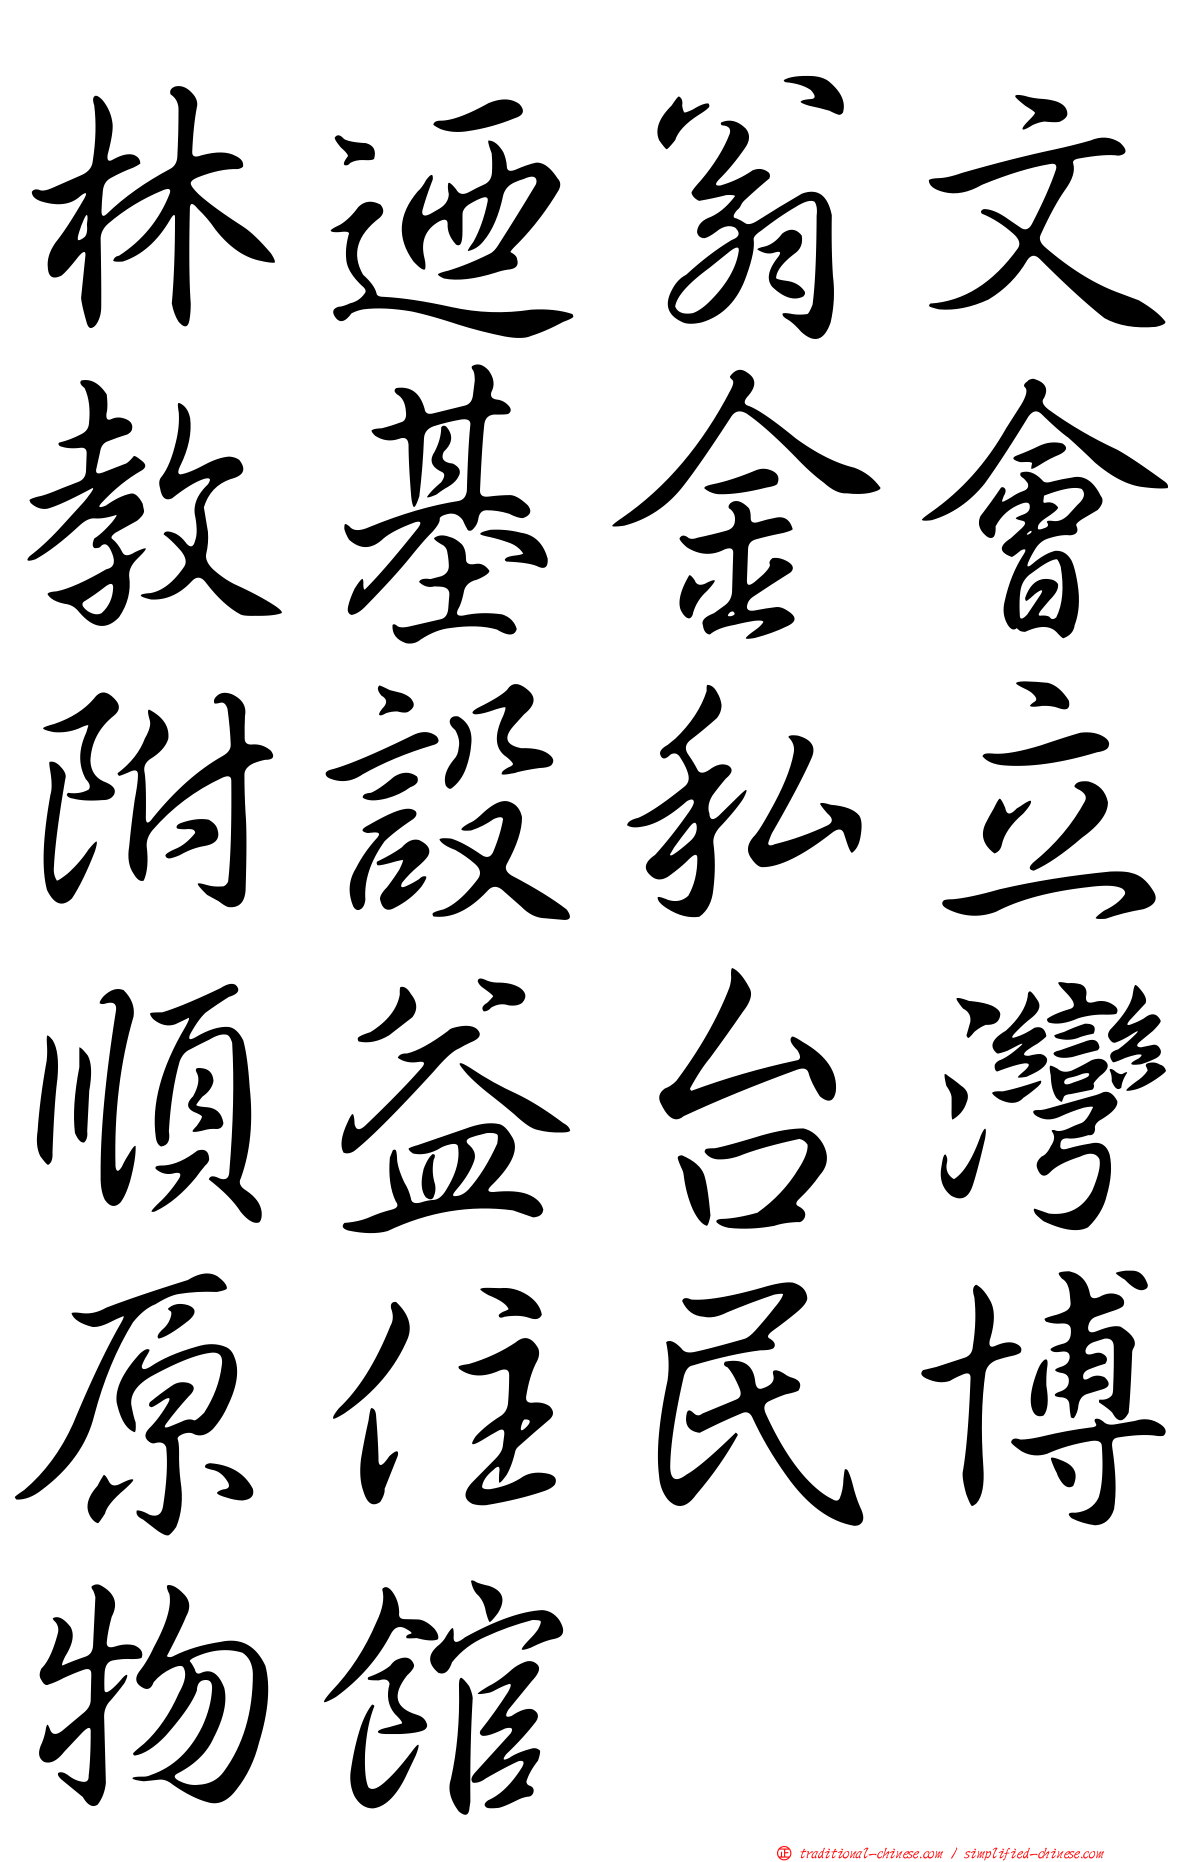 林迺翁文
教基金會
附設私立
順益台灣
原住民博
物館
正 traditional-chinese.com / simplified-chinese.com